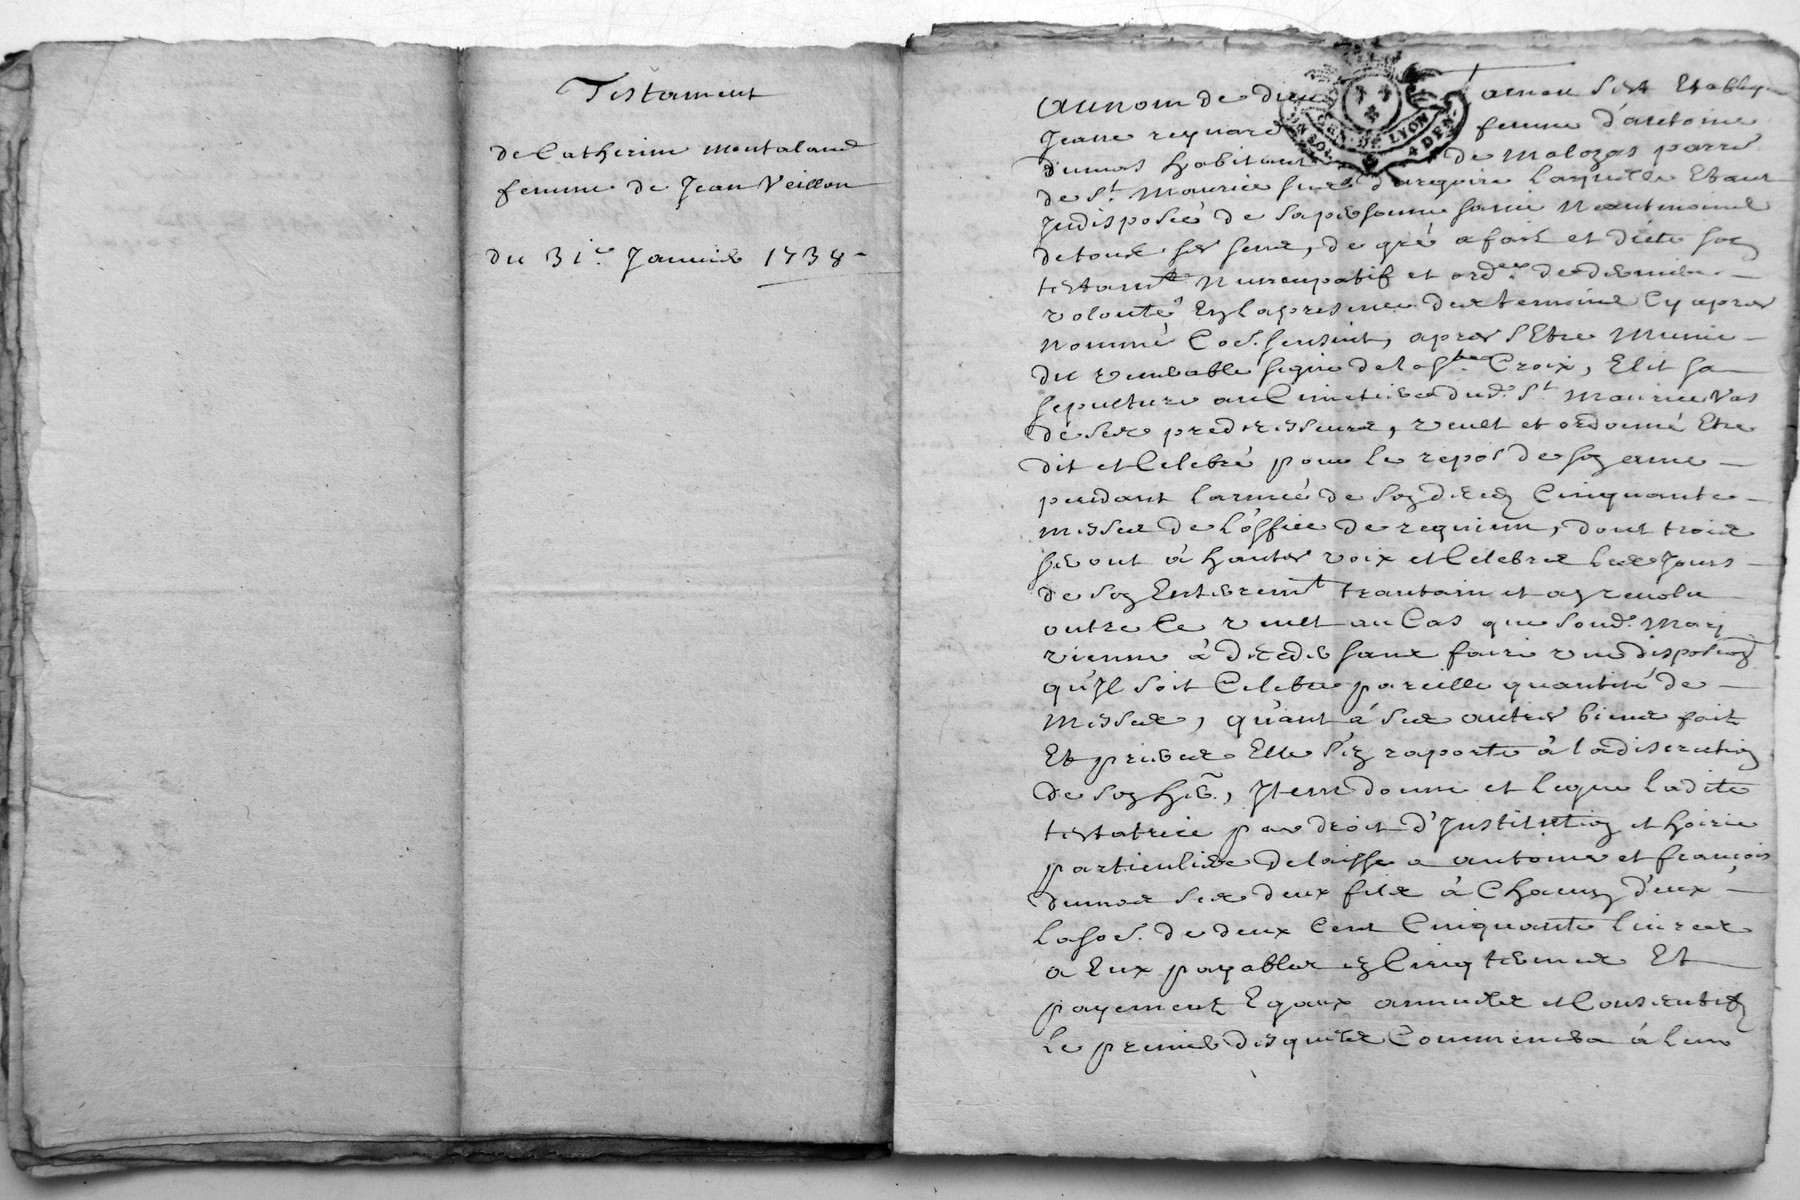 Testament
de Catherine montaland
femme de Jean Veillon
du 31.e Janvier 1738
Au nom de dieu amen s'est Etablye
Jeane reynard femme d'antoine
dumas habitant de malozas parre
de St. Maurice sur dargoire laquelle Etant
Indisposée de sa personne saine neantmoins
de tous ses sens, de gré a fait et dicté son
testamt. nuncupatif et ordce. de derniere
volonté En la presence des temoins Cy apres
nommé Coe. sensuit, apres s'Etre Munie
du venerable signe de la ste. Croix, Elit sa
sepulture au Cimetiere dud. St. Maurice Vas
de ses predecesseurs, veult et ordonné Etre
dit et Celebré pour le repos de son ame
pendant l'année de son decez Cinquante
messes de l'office de requiem, dont trois
seront à hautes voix et Celebrés les Jours
de son Enterremt. trantain et an revolu
outre Ce veult au Cas que sond. Mary
vienne à deceder sans faire une disposion
qu'Il soit Celebré pareille quantité de
messes, qu'ant à ses autres biens fait
Et prieres Elle s'en raporte à la discretion
de son her., Item donne et legue ladite
testatrice par droit d'Institution et hoirie
particuliere delaisse a antoine et françois
dumas ses deux fils à Chacun d'eux
la soe. de deux Cent Cinquante livres
a Eux payables en Cinq termes Et
payements Egaux annuels et Consecutifs
le premier desquels Commencera à leur